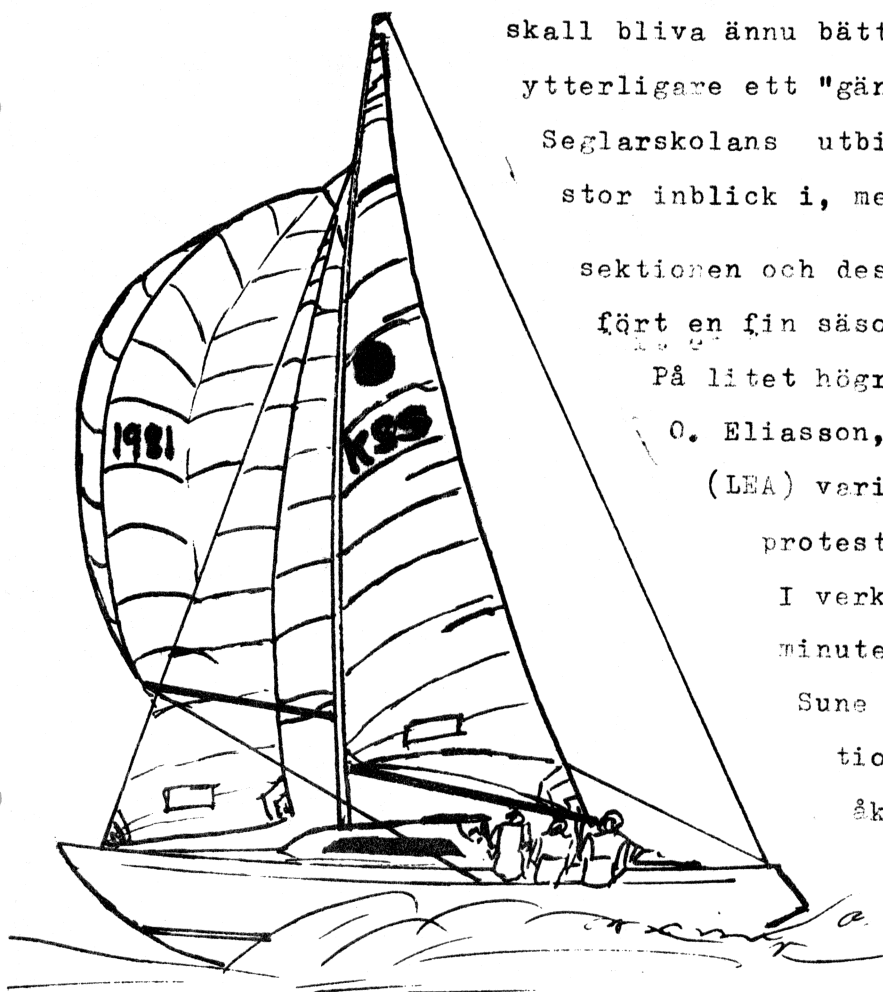 skall bliva ännu bätt
ytterligare ett "gän
Seglarskolans utbi
stor inblick i, me
sektionen och des
fört en fin säso
På litet högr
O. Eliasson,
(LEA) vari
protest
I verk
minute
Sune
tio
åk
1981
KSS